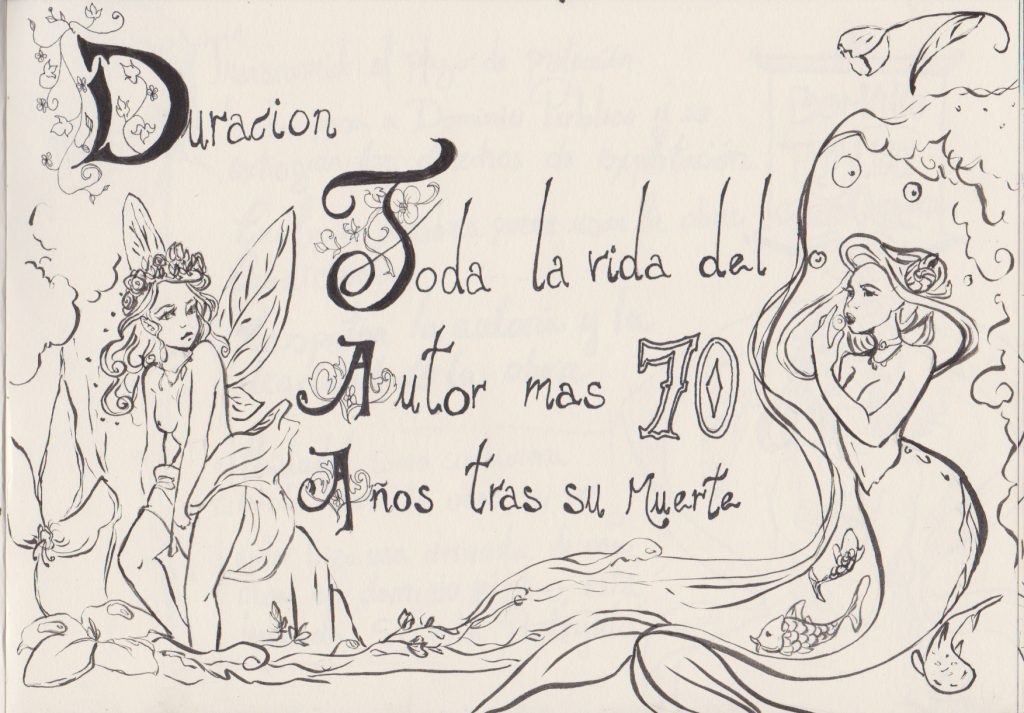 Duracion
Toda la vida del
Autor mas 70
Años tras su Muerte